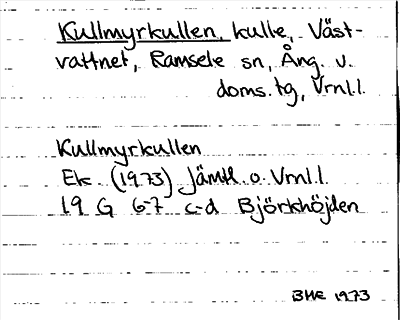 Kullmyrkullen, kulle, Väst-
vattnet, Ramsele sn, Ång. v.
doms.tg, Vrnl.l.
Kullmyrkullen
Ek (1973) Jämtl. o. Vrnl.l.
19 G 6-7 c-d Björkhöjden
BHE 1973